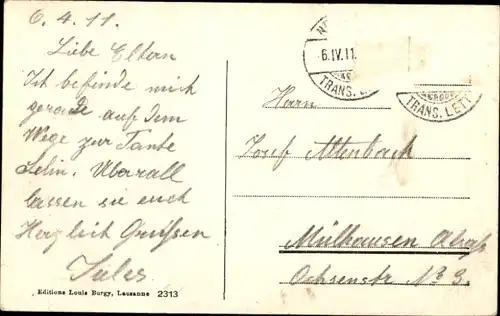 6.4.11.
Liebe Eltern
Ich befinde mich
gerade auf dem
Wege zur Tante
Selin. Überall
lassen sie euch
Herzlich Grüssen
Jules
Editions Louis Burgy, Lausanne 2313
6.IV.11.
TRANS. LETT
TRANS. LETT
Herrn
Josef Altenbach
Mülhausen Elsass
Ochsenstr. No 3.